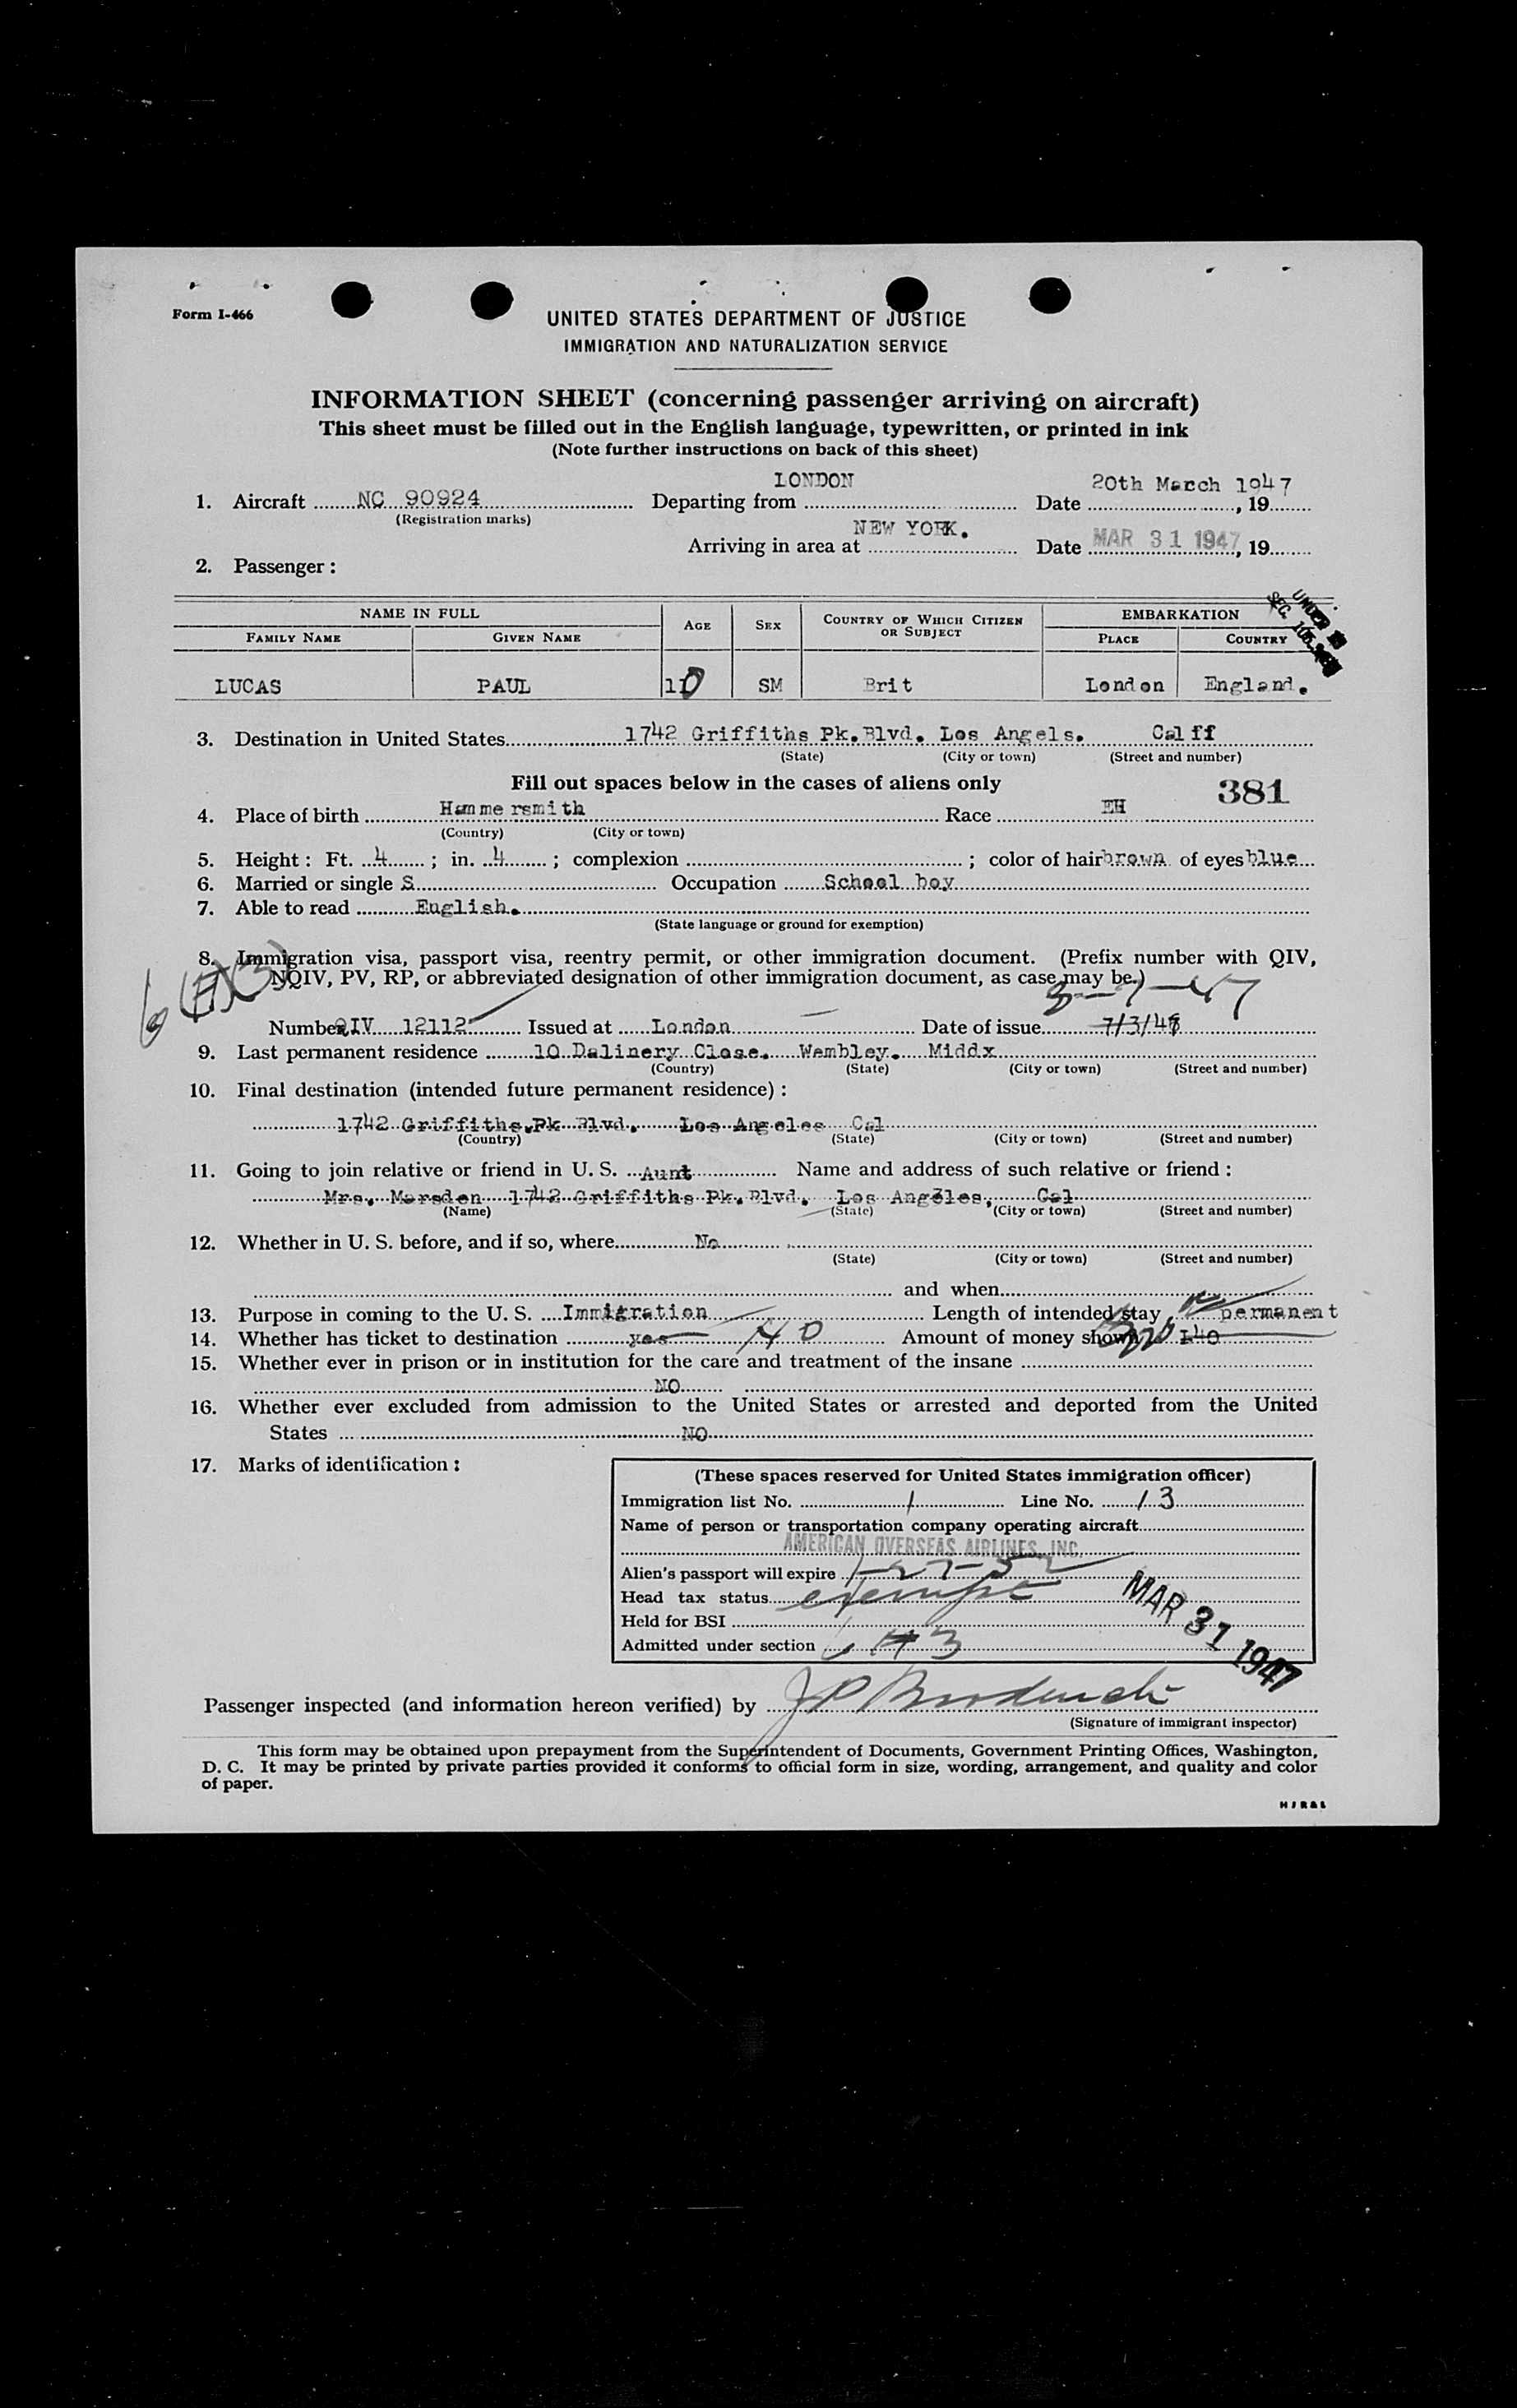 Form I-466
UNITED STATES DEPARTMENT OF JUSTICE
IMMIGRATION AND NATURALIZATION SERVICE
INFORMATION SHEET (concerning passenger arriving on aircraft)
This sheet must be filled out in the English language, typewritten, or printed in ink
(Note further instructions on back of this sheet)
1. Aircraft NC 90924 Departing from LONDON Date 20th March 1947, 19
(Registration marks)
Arriving in area at NEW YORK. Date MAR 31 1947, 19
2. Passenger:
NAME IN FULL AGE SEX COUNTRY OF WHICH CITIZEN OR SUBJECT EMBARKATION
FAMILY NAME GIVEN NAME PLACE COUNTRY
UNDER
SEC.
LUCAS PAUL 10 SM Brit London England.
3. Destination in United States 1742 Griffiths Pk.Blvd. Los Angels. Calff
(State) (City or town) (Street and number)
Fill out spaces below in the cases of aliens only
381
4. Place of birth Hammersmith Race EH
(Country) (City or town)
5. Height: Ft. 4; in. 4; complexion ; color of hair brown of eyes blue
6. Married or single S Occupation School boy
7. Able to read English.
(State language or ground for exemption)
8. Immigration visa, passport visa, reentry permit, or other immigration document. (Prefix number with QIV,
NQIV, PV, RP, or abbreviated designation of other immigration document, as case may be.)
3-7-47
Number QIV 12112 Issued at London Date of issue 7/3/48
9. Last permanent residence 10 Dalinery Close. Wembley. Middx
(Country) (State) (City or town) (Street and number)
10. Final destination (intended future permanent residence):
1742 Griffiths.Pk Blvd. Los Angeles Cal
(Country) (State) (City or town) (Street and number)
11. Going to join relative or friend in U. S. Aunt Name and address of such relative or friend:
Mrs. Marsden 1742 Griffiths Pk.Blvd. Los Angeles, Cal
(Name) (State) (City or town) (Street and number)
12. Whether in U. S. before, and if so, where No
(State) (City or town) (Street and number)
and when
13. Purpose in coming to the U. S. Immigration Length of intended stay permanent
14. Whether has ticket to destination yes Amount of money shown
15. Whether ever in prison or in institution for the care and treatment of the insane
NO
16. Whether ever excluded from admission to the United States or arrested and deported from the United
States NO
17. Marks of identification:
(These spaces reserved for United States immigration officer)
Immigration list No. 1 Line No. 13
Name of person or transportation company operating aircraft
AMERICAN OVERSEAS AIRLINES, INC.
Alien's passport will expire 1-27-52
Head tax status exempt
Held for BSI
Admitted under section
MAR 31 1947
Passenger inspected (and information hereon verified) by
(Signature of immigrant inspector)
This form may be obtained upon prepayment from the Superintendent of Documents, Government Printing Offices, Washington,
D. C. It may be printed by private parties provided it conforms to official form in size, wording, arrangement, and quality and color
of paper.
HJR&L